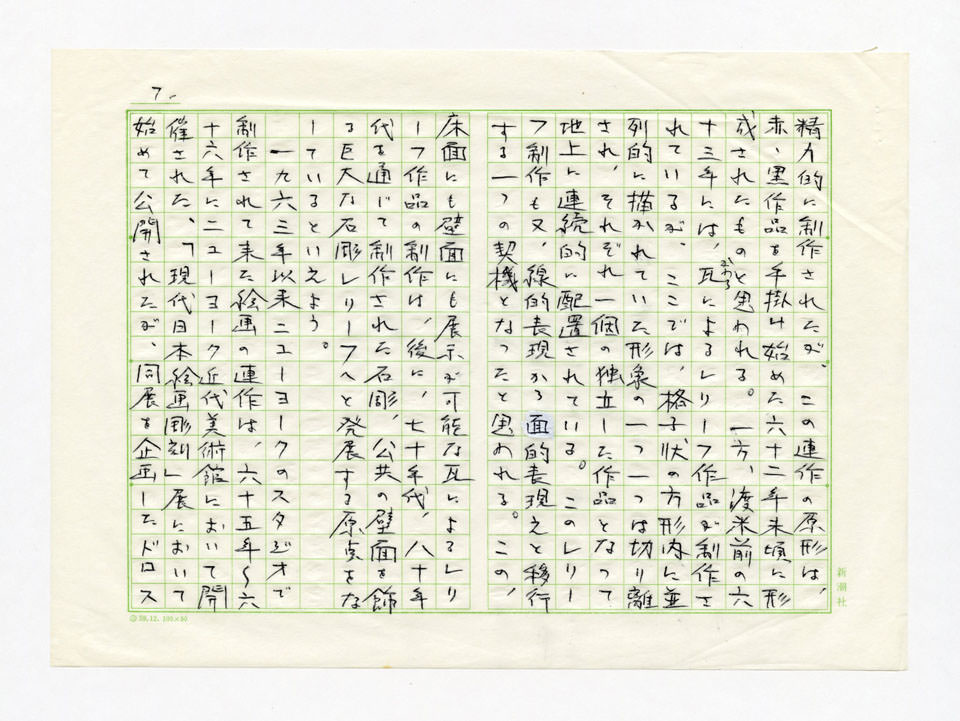 7.
精力的に制作されたが、この連作の原形は、
赤、黒作品を手掛け始めた六十二年末頃に形
成されたものと思われる。一方、渡米前の六
十三年には、瓦によるレリーフ作品が制作さ
かわら
れているが、ここでは、格子状の方形内に並
列的に描かれていた形象の一つ一つは切り離
され、それぞれ一個の独立した作品となって
地上に連続的に配置されている。このレリー
フ制作も又、線的表現から面的表現えと移行
する一つの契機となったと思われる。この、
床面にも壁面にも展示が可能な瓦によるレリ
ーフ作品の制作は、後に、七十年代、八十年
代を通じて制作された石彫、公共の壁面を飾
る巨大な石彫レリーフへと発展する原点をな
しているといえよう。
一九六三年以来ニューヨークのスタジオで
制作されて来た絵画の連作は、六十五年〜六
十六年にニューヨーク近代美術館において開
催された、「現代日本絵画彫刻」展において
始めて公開されたが、同展を企画したドロス
新潮社
59.12. 100×50